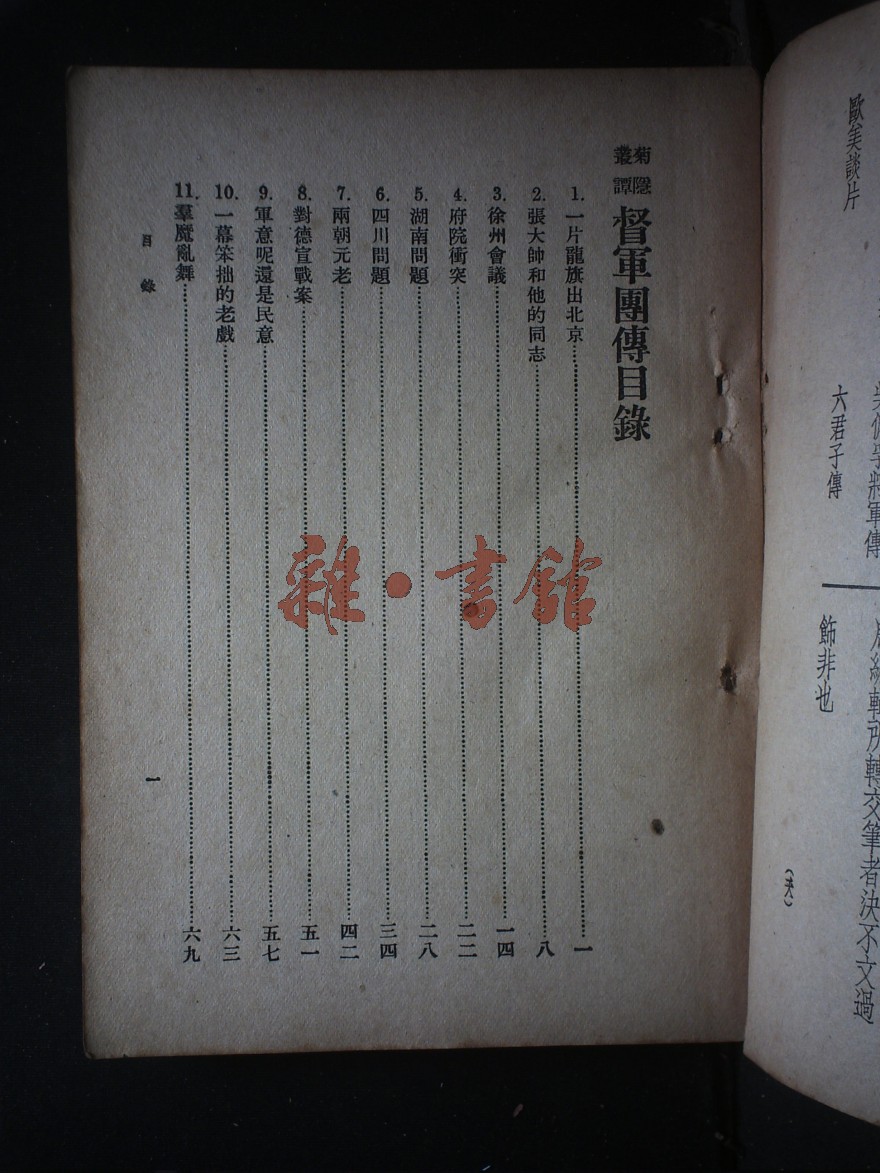 吳佩孚將軍傳
所轉交筆者決不文過
六君子傳
飾非也
歐美談片
菊隱叢譚 督軍團傳目錄
1. 一片龍旗出北京……一
2. 張大帥和他的同志……八
3. 徐州會議……一四
4. 府院衝突……二二
5. 湖南問題……二八
6. 四川問題……三四
7. 兩朝元老……四二
8. 對德宣戰案……五一
9. 軍意呢還是民意……五七
10. 一幕笨拙的老戲……六三
11. 羣魔亂舞……六九
目錄
一
雜·書館